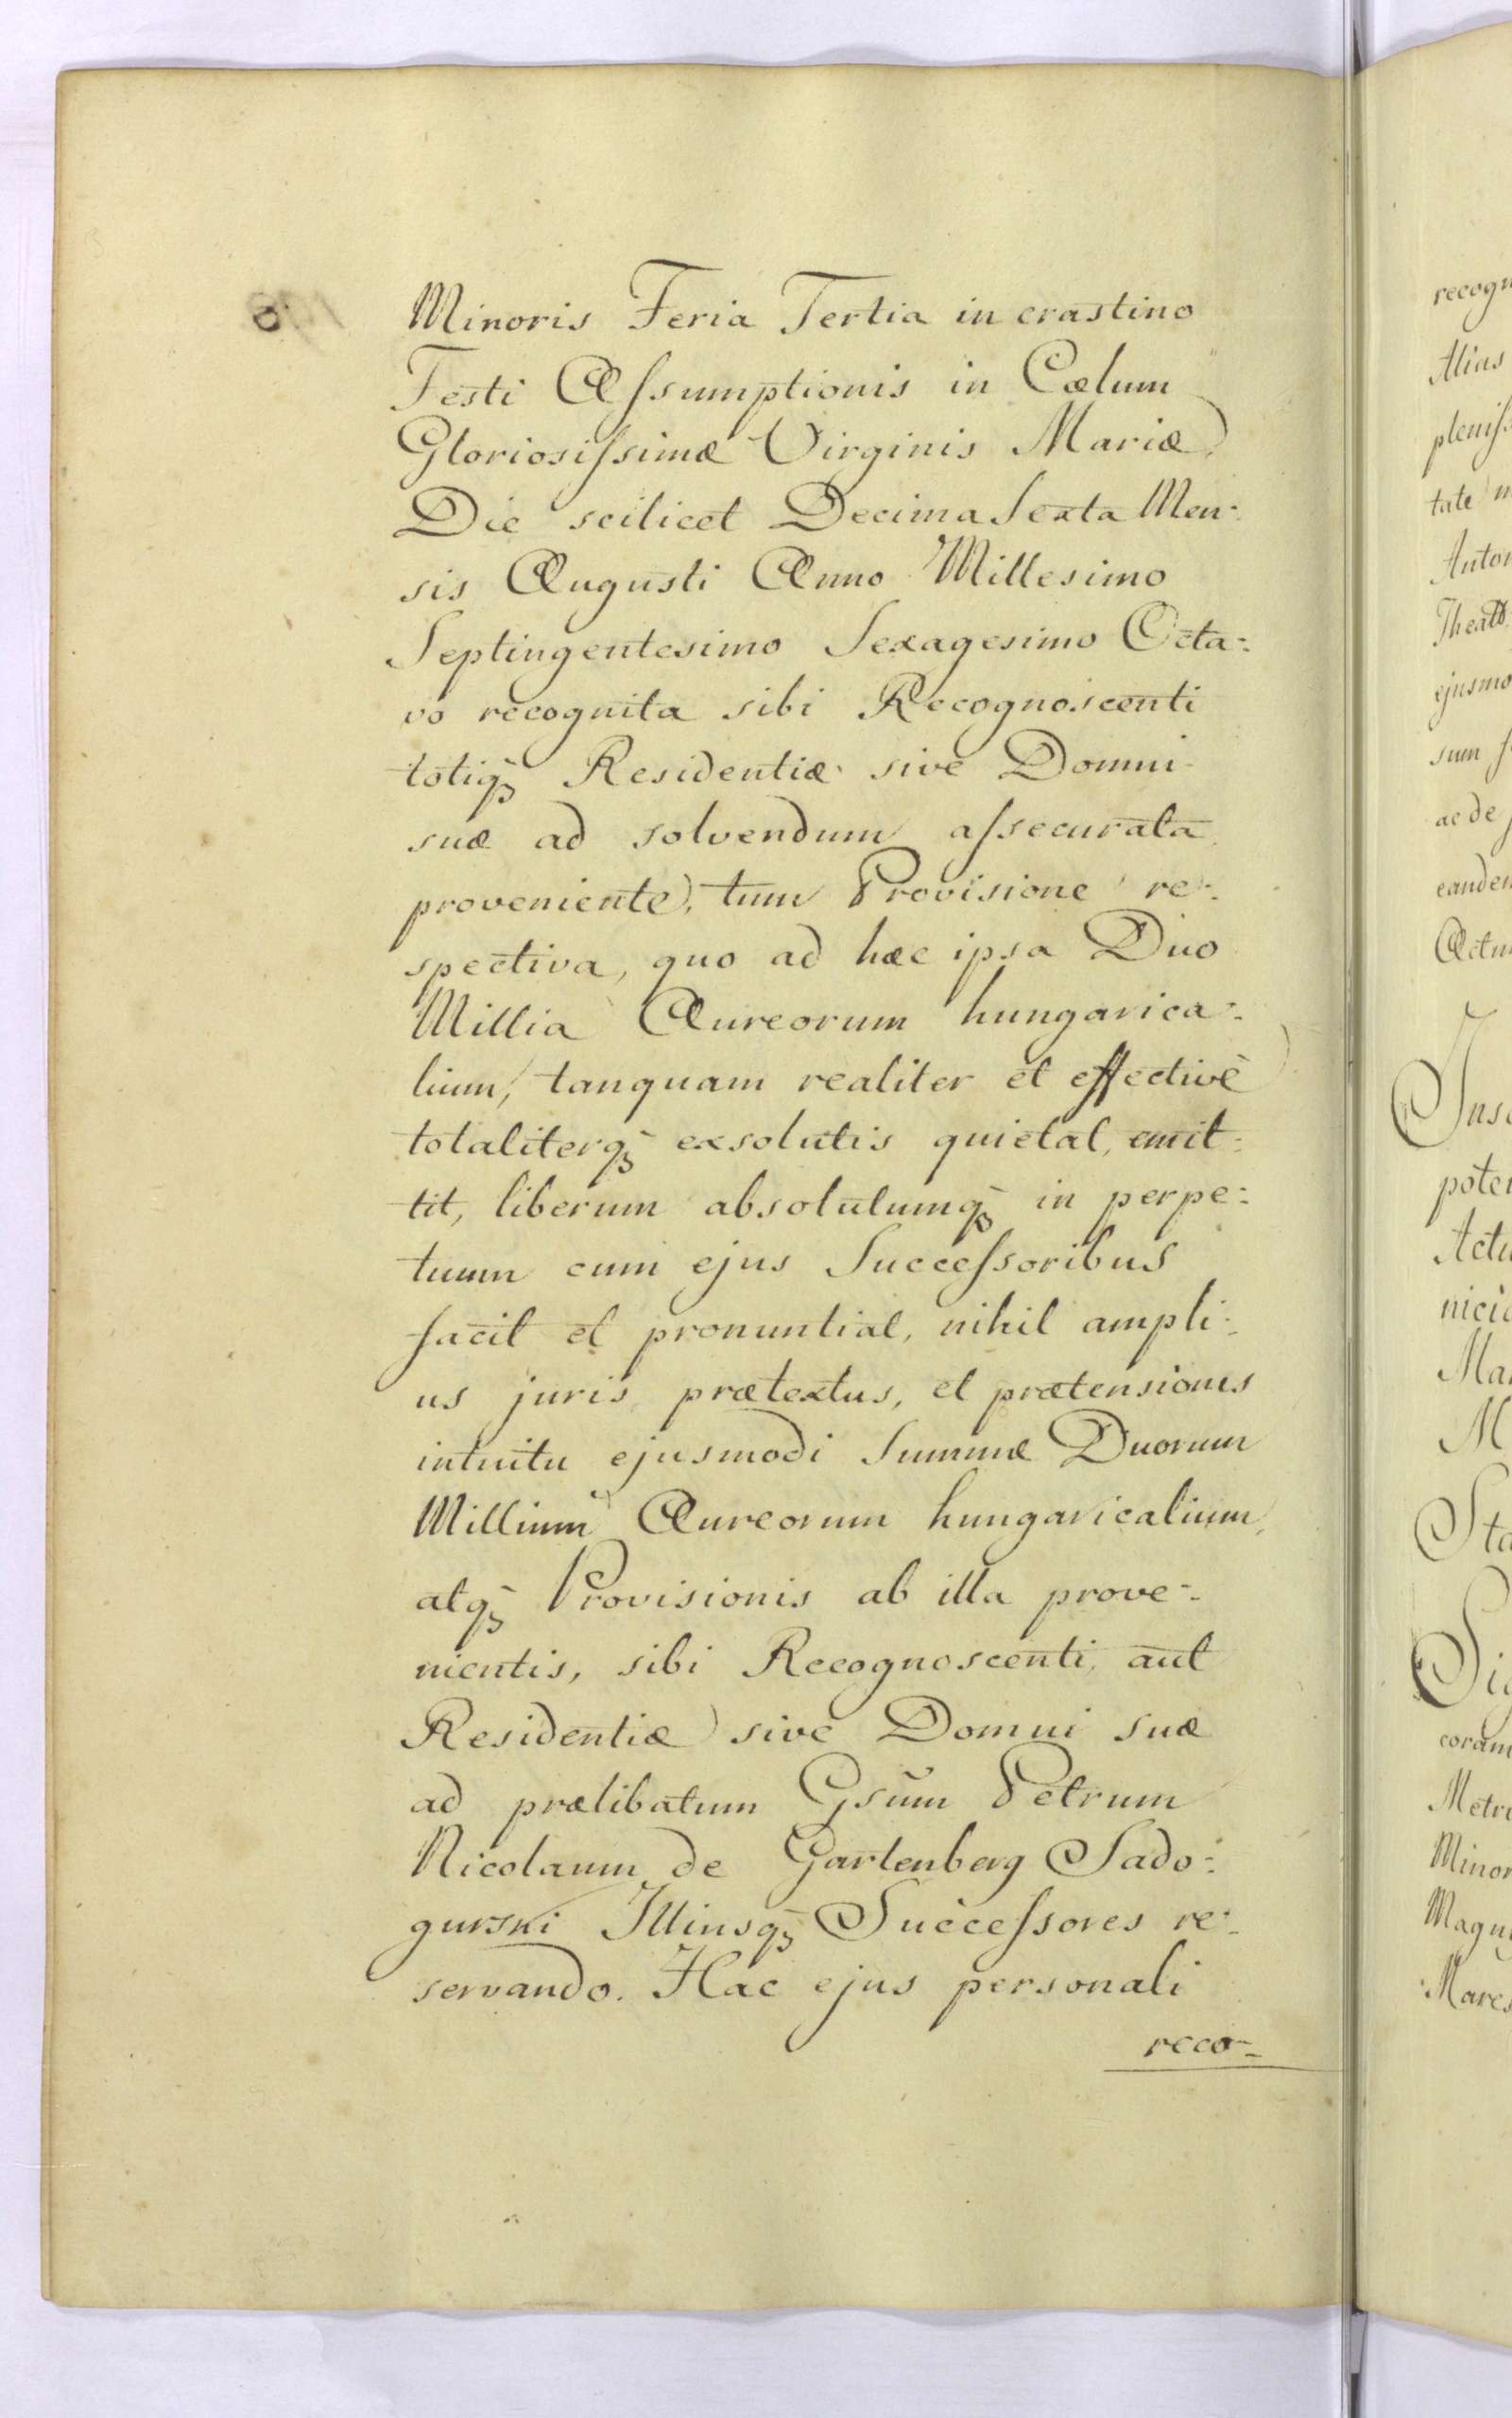 Minoris Feria Tertia in crastino
Festi Assumptionis in Cœlum
Gloriosissimæ Virginis Mariæ
Die scilicet Decima Sexta Men-
sis Augusti Anno Millesimo
Septingentesimo Sexagesimo Octa-
vo recognita sibi Recognoscenti
totiq; Residentiæ sive Domui
suæ ad solvendum assecurata
proveniente, tum Provisione re-
spectiva, quo ad hæc ipsa Duo
Millia Aureorum hungarica-
lium, tanquam realiter et effectivè
totaliterq; exsolutis quietat, emit-
tit, liberum absolutumq; in perpe-
tuum cum ejus Successoribus
facit et pronuntiat, nihil ampli-
us juris, prætextus, et prætensiones
intuitu ejusmodi Summæ Duorum
Millium Aureorum hungaricalium,
atq; Provisionis ab illa prove-
nientis, sibi Recognoscenti, aut
Residentiæ sive Domui suæ
ad prælibatum Gsum Petrum
Nicolaum de Gartenberg Sado-
gurski Illiusq; Successores re-
servando. Hac ejus personali
reco-
recogn
Alias
pleniss
tate
Anton
ejusmo
sum
ac de
eandem
Actum
poten
Actu
Mar
M
Sta
Sig
coram
Metro
Minor
Magn
Mares